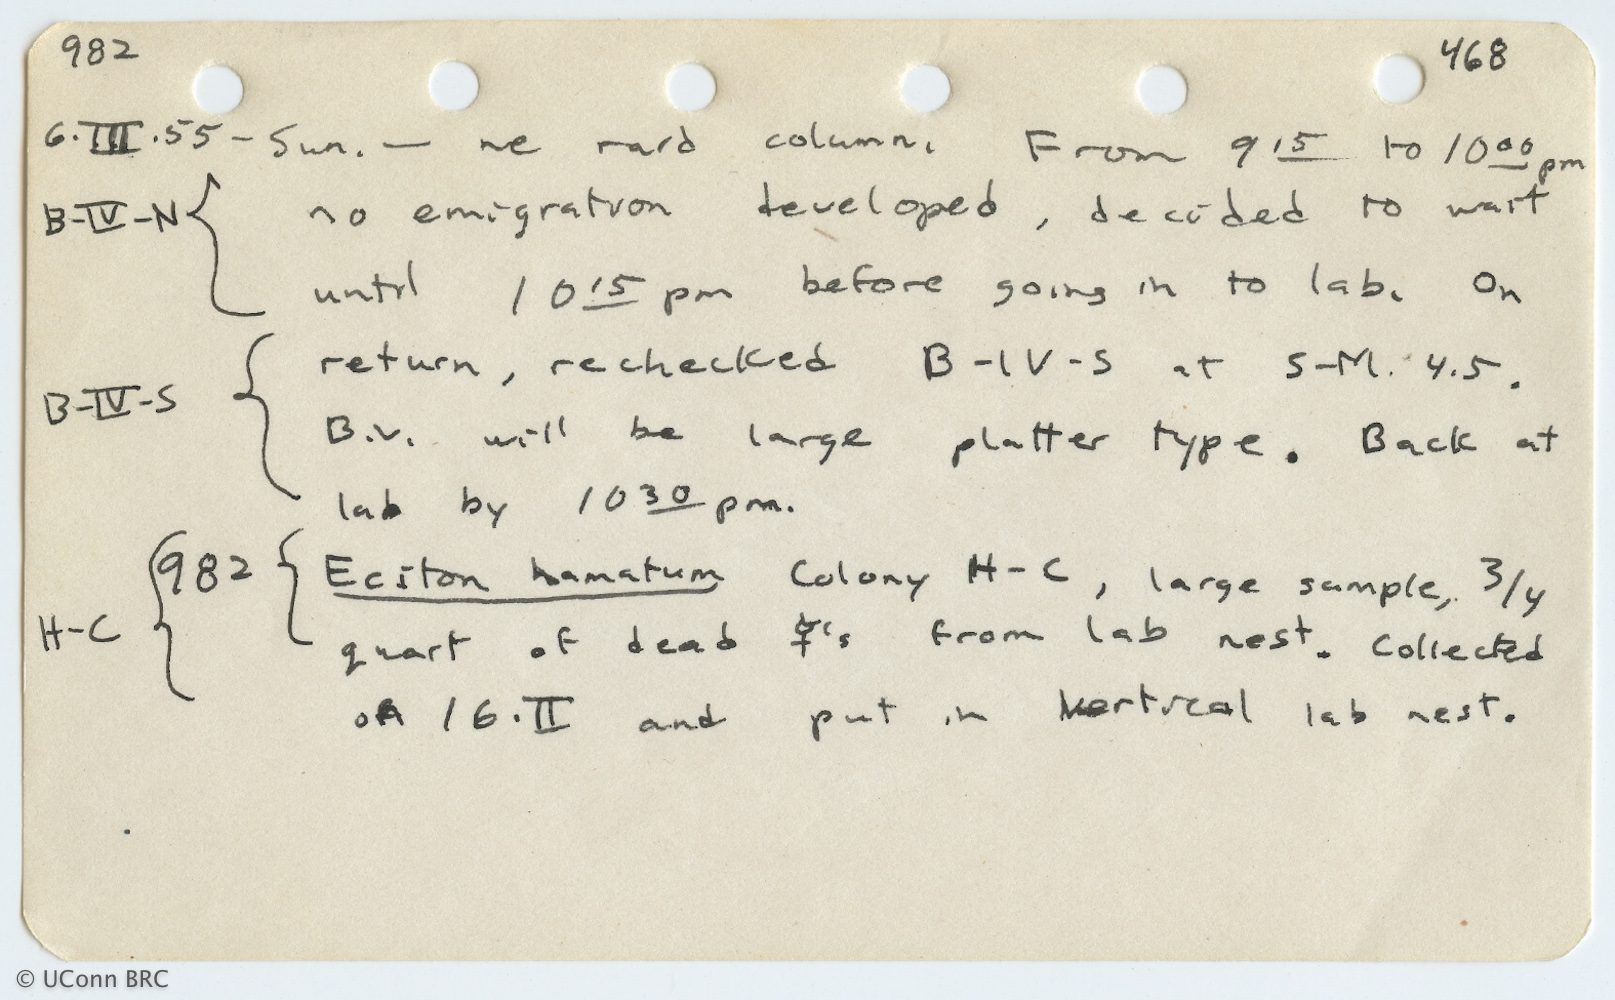 982 468
6.III.55 - Sun. — ne raid column. From 9 15 to 10 00 pm
B-IV-N no emigration developed, decided to wait
until 10 15 pm before going in to lab. On
return, rechecked B-IV-S at S-M. 4.5.
B-IV-S B.v. will be large platter type. Back at
lab by 10 30 pm.
982 Eciton hamatum Colony H-C, large sample, 3/4
H-C quart of dead ☿'s from lab nest. Collected
on 16.II and put in vertical lab nest.
© UConn BRC